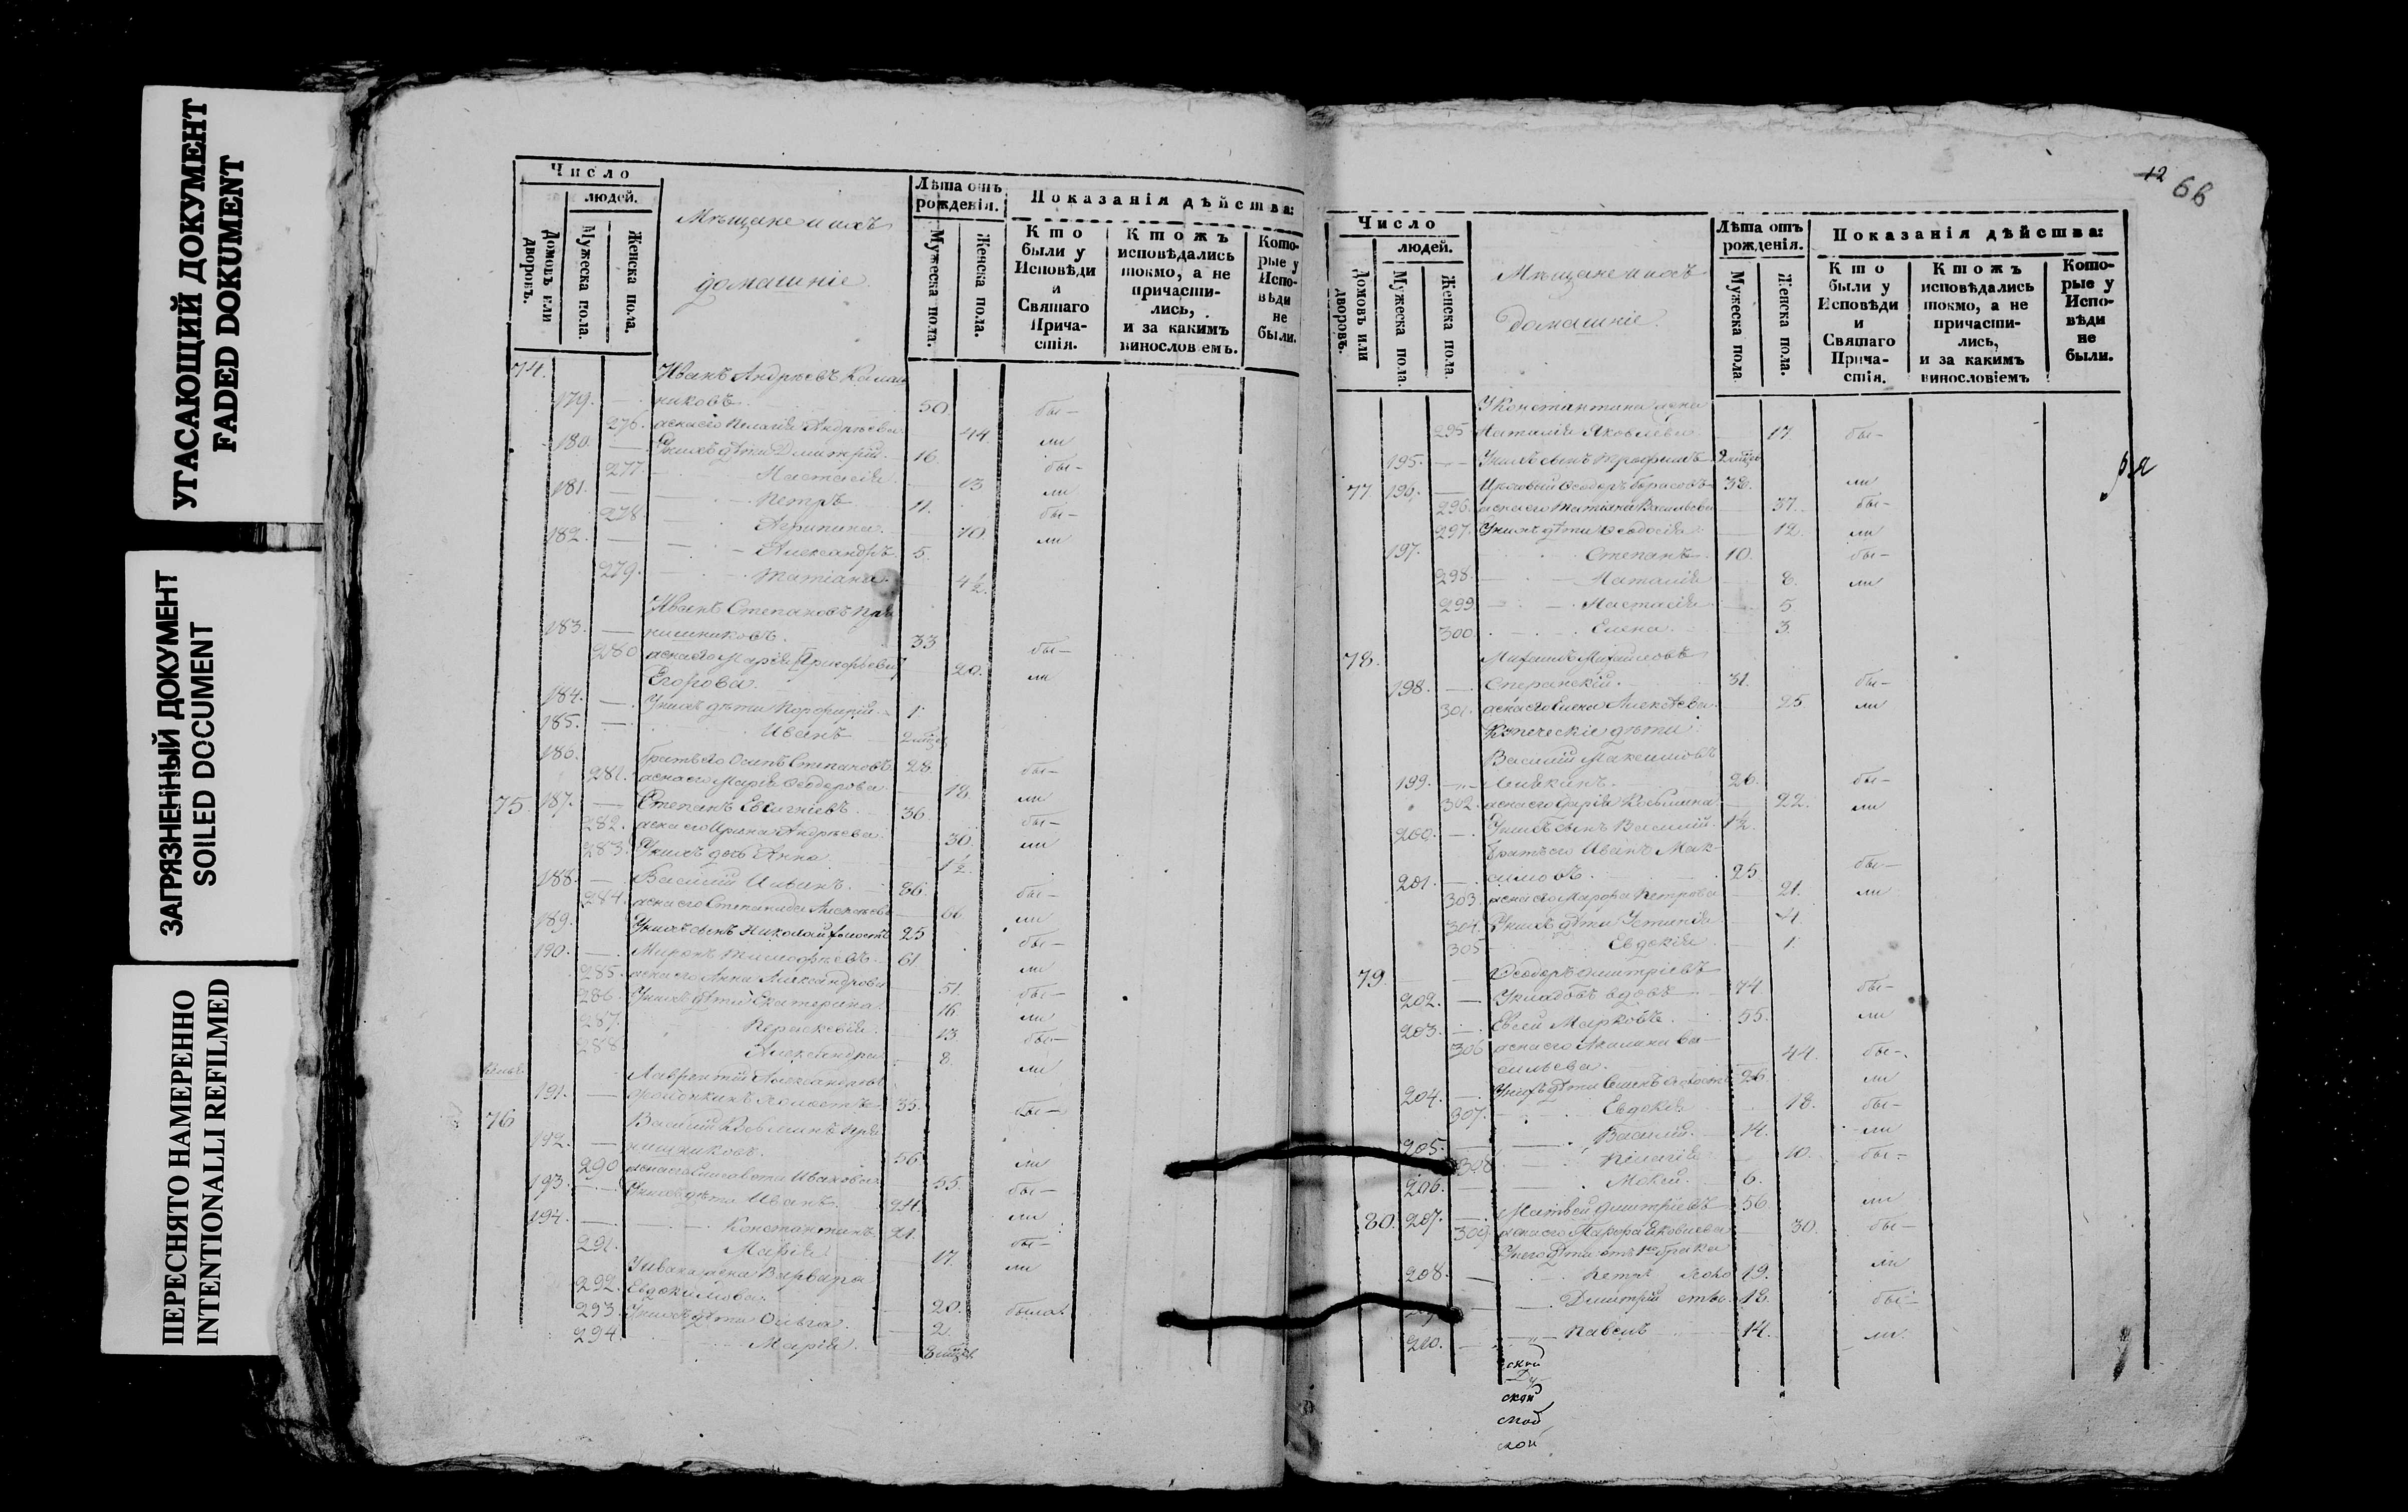 УГАСАЮЩИЙ ДОКУМЕНТ
FADED DOKUMENT
ЗАГРЯЗНЕННЫЙ ДОКУМЕНТ
SOILED DOCUMENT
ПЕРЕСНЯТО НАМЕРЕННО
INTENTIONALLI REFILMED
Число
людей.
Домовъ или дворовъ.
Мужеска пола.
Женска пола.
Мѣщане и ихъ
домашніе.
Лѣта отъ рожденія.
Мужеска пола.
Женска пола.
Показанія дѣйства:
Кто были у Исповѣди и Святаго Причастія.
Ктожъ исповѣдались токмо, а не причастились, и за какимъ винословіемъ.
Которые у Исповѣди не были.
74. Иванъ Андрѣевъ
179. никовъ. 50. бы–
276. жена его Пелагія Андрѣева 44. ли
180. У нихъ дѣти Димитрій. 16. бы–
277. Настасія. 13. ли
181. Петръ 11. бы–
278. Агрипина. 10. ли
182. Александръ 5.
279. Татіана. 4½.
Иванъ Степановъ Пря
183. нишниковъ. 33. бы–
280. жена его Марія Григорьева
Егорова. 20. ли
184. У нихъ дѣти Порфирій. 1.
185. Иванъ 2 мѣсяц
186. братъ его Осипъ Степановъ 28. бы–
281. жена его Марія Ѳеодорова 18. ли
75. 187. Степанъ Евсигніевъ. 36. бы–
282. жена его Ирина Андрѣева. 30. ли
283. У нихъ дочь Анна 1½.
188. Василій Ильинъ. 86. бы–
284. жена его Степанида Алексѣева 66. ли
189. У нихъ сынъ Николай холостъ 25. бы–
190. Миронъ Тимофѣевъ. 61. ли
285. жена его Анна Александрова 51. бы–
286. У нихъ дѣти Екатерина 16. ли
287. Параскевія. 13. бы–
288. Александра 8. ли
Лаврентій Александровъ
191. холостъ 35. бы–
76. Василій Козьминъ Пря
192. нишниковъ. 56. ли
290. жена его Елисавета Иванова 55. бы–
193. У нихъ дѣти Иванъ. 24. ли
194. Константинъ 21. бы–
291. Марія. 17. ли
У Ивана жена Варвара
292. Евдокимова. 20. была
293. У нихъ дѣти Ольга. 2.
294. Марія. 8 мѣсяц.
12 66
Число
людей.
Домовъ или дворовъ.
Мужеска пола.
Женска пола.
Мѣщане и ихъ
домашніе.
Лѣта отъ рожденія.
Мужеска пола
Женска пола.
Показанія дѣйства:
Кто были у Исповѣди и Святаго Причастія.
Ктожъ исповѣдались токмо, а не причастились, и за какимъ винословіемъ
Которые у Исповѣди не были.
У Константина жена
295. Наталія Яковлева 17. бы–
195. У нихъ сынъ Трофимъ 2 мѣсяц
77. 196. Ѳеодоръ Борисовъ 38. ли
296. жена его Татіана Васильева 37. бы–
297. У нихъ дѣти Ѳеодосія. 12. ли
197. Степанъ. 10. бы–
298. Наталія 8. ли
299. Настасія 5.
300. Елена. 3.
78. Михаилъ Михайловъ
198. Сперанскій. 31. бы–
301. жена его Елена Алексѣева. 25. ли
Купеческіе дѣти.
Василій Максимовъ
199. 26. бы–
302. жена его Дарія Козьмина 22. ли
200. У нихъ сынъ Василій 1½.
Братъ его Иванъ Мак-
201. симовъ. 25. бы–
303. жена его Марѳа Петрова 21. ли
304. У нихъ дѣти Устинія 4.
305. Евдокія 1.
79. Ѳеодоръ Димитріевъ
202. вдовъ 74. бы–
203. Евсей Марковъ. 55. ли
306. жена его Акилина Ва–
сильева. 44. бы–
204. У нихъ дѣти Семенъ холостъ 26. ли
307. Евдокія 18. бы–
205. Василій. 14. ли
308. Пелагія 10. бы–
206. Мокей. 6.
80. 207. Матвей Димитріевъ 56. ли
309. жена его Яковлева 30. бы–
У него дѣти отъ 1го брака
208. Петръ холо 19. ли
Димитрій стъ. 18. бы–
210. Павелъ 14. ли.
ской
ской
ской